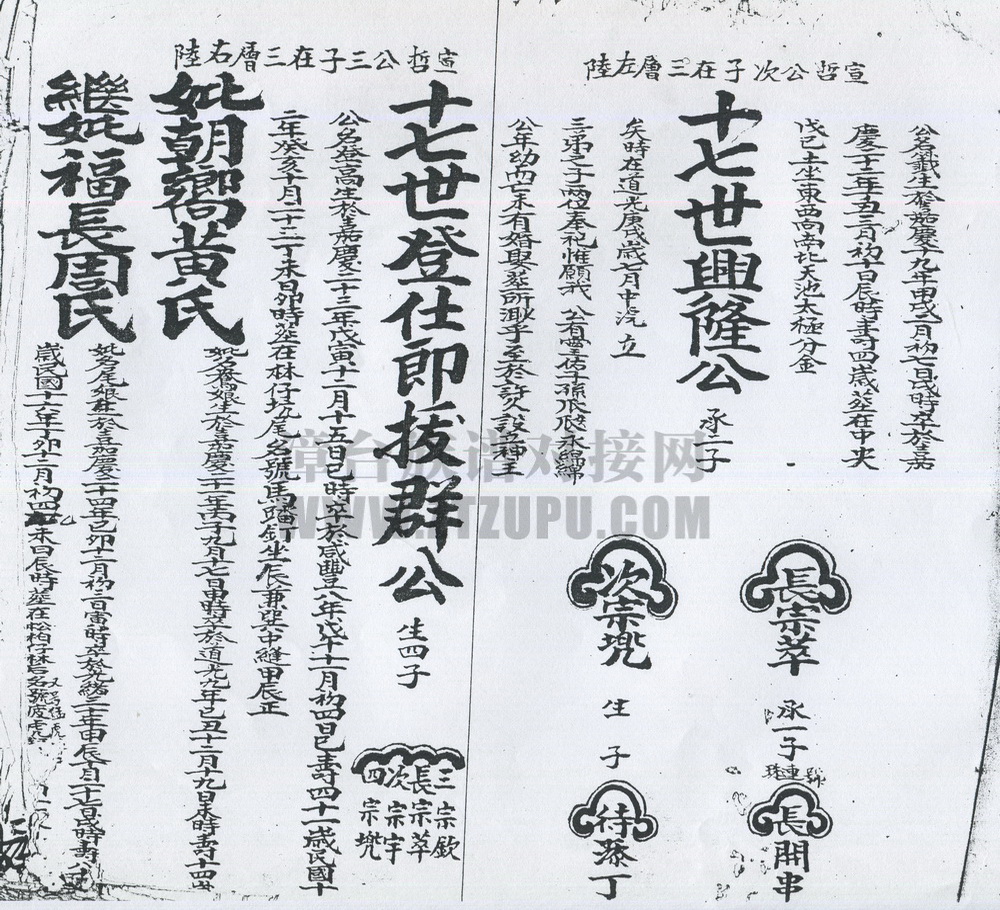 宣哲公次子在三層左陸
公名 生於嘉慶十九年甲戌 月初 日戌時卒於嘉
慶 年 三月初 日辰時壽四歲葬在中央
戊己土坐東西南北天池太極分金
十七世興隆公
承一子
矣時在道光庚戌歲七月中汔立
三弟之子兩禮奉祀惟願我 公有靈 孫 永綿綿
公年幼而亡未有婚娶葬所渺乎至於許久設立神主
長宗萃
承一子
號
連
珠
長開串
次宗兠
生 子
待添丁
宣哲公三子在三層右陸
十七世登仕郎拔群公
生四子
三宗欽
長宗萃
次宗宇
四宗兠
公名登高生於嘉慶二十三年戊寅十二月十五日巳時卒於咸豐八年戊午十一月初四日巳 壽四十一歲民國十
二年癸亥十月二十二丁未日卯時葬在林仔坑尾名號馬 坐辰兼巽中縫甲辰正
妣朝 黃氏
妣名 娘生於嘉慶二十一年丙子九月十七日 時卒於道光九年己丑十二月十九日未時壽十四歲
繼妣福長周氏
妣名尾娘生於嘉慶二十四年己卯十二月初二日寅時卒於光緒三十年甲辰 月二十 日戌時壽八十
歲民國十六年丁卯十二月初四乙未日辰時葬在松柏仔林 名號
漳台族谱对接网
WWW. TZUPU.COM